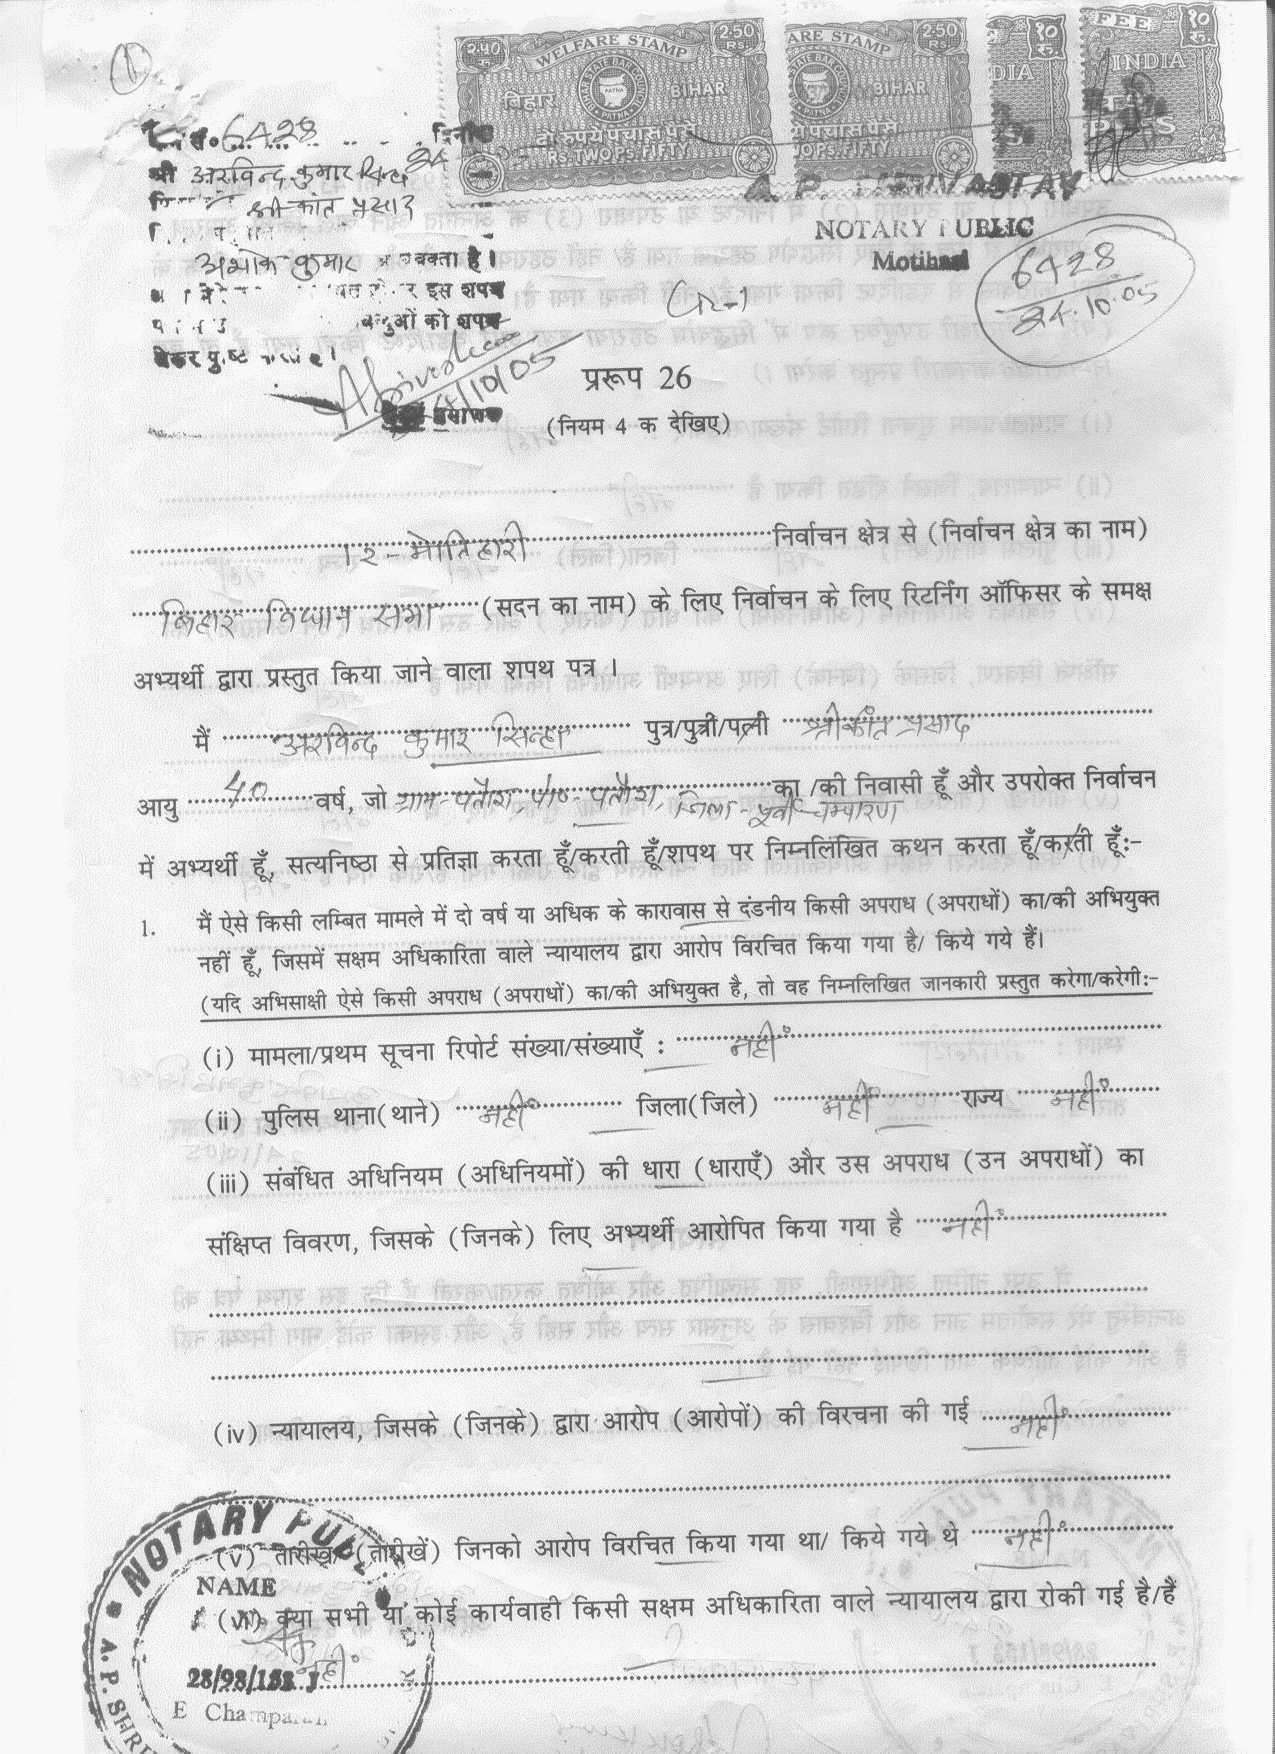 1
२.५० रु. WELFARE STAMP 2.50 RS.
ARE STAMP 2.50 RS.
१० रु.
FEE १० रु.
बिहार BIHAR
BIHAR
DIA
INDIA
दो रुपये पचास पैसे
RS. TWO PS. FIFTY
6428
श्री अरविन्द कुमार सिन्हा 24
श्रीकांत प्रसाद
अशोक कुमार अधिवक्ता है।
इस शपथ
को शपथ
24/10/05
NOTARY PUBLIC
Motihari
6428
24.10.05
प्ररूप 26
(नियम 4 क देखिए)
12-मोतिहारी निर्वाचन क्षेत्र से (निर्वाचन क्षेत्र का नाम)
बिहार विधान सभा (सदन का नाम) के लिए निर्वाचन के लिए रिटर्निंग ऑफिसर के समक्ष
अभ्यर्थी द्वारा प्रस्तुत किया जाने वाला शपथ पत्र ।
मैं अरविन्द कुमार सिन्हा पुत्र/पुत्री/पत्नी श्रीकांत प्रसाद
आयु 40 वर्ष, जो ग्राम-पतौरा पो०-पतौरा, जिला-पूर्वी चम्पारण का /की निवासी हूँ और उपरोक्त निर्वाचन
में अभ्यर्थी हूँ, सत्यनिष्ठा से प्रतिज्ञा करता हूँ/करती हूँ/शपथ पर निम्नलिखित कथन करता हूँ/करती हूँ:-
1. मैं ऐसे किसी लम्बित मामले में दो वर्ष या अधिक के कारावास से दंडनीय किसी अपराध (अपराधों) का/की अभियुक्त
नहीं हूँ, जिसमें सक्षम अधिकारिता वाले न्यायालय द्वारा आरोप विरचित किया गया है/ किये गये हैं।
(यदि अभिसाक्षी ऐसे किसी अपराध (अपराधों) का/की अभियुक्त है, तो वह निम्नलिखित जानकारी प्रस्तुत करेगा/करेगी:-
(i) मामला/प्रथम सूचना रिपोर्ट संख्या/संख्याएँ : नहीं
(ii) पुलिस थाना(थाने) नहीं जिला(जिले) नहीं राज्य नहीं
(iii) संबंधित अधिनियम (अधिनियमों) की धारा (धाराएँ) और उस अपराध (उन अपराधों) का
संक्षिप्त विवरण, जिसके (जिनके) लिए अभ्यर्थी आरोपित किया गया है नहीं
(iv) न्यायालय, जिसके (जिनके) द्वारा आरोप (आरोपों) की विरचना की गई नहीं
(v) तारीख (तारीखें) जिनको आरोप विरचित किया गया था/ किये गये थे नहीं
(vi) क्या सभी या कोई कार्यवाही किसी सक्षम अधिकारिता वाले न्यायालय द्वारा रोकी गई है/हैं
नहीं
NOTARY PU
NAME
V. P. SHRI
E Champaran